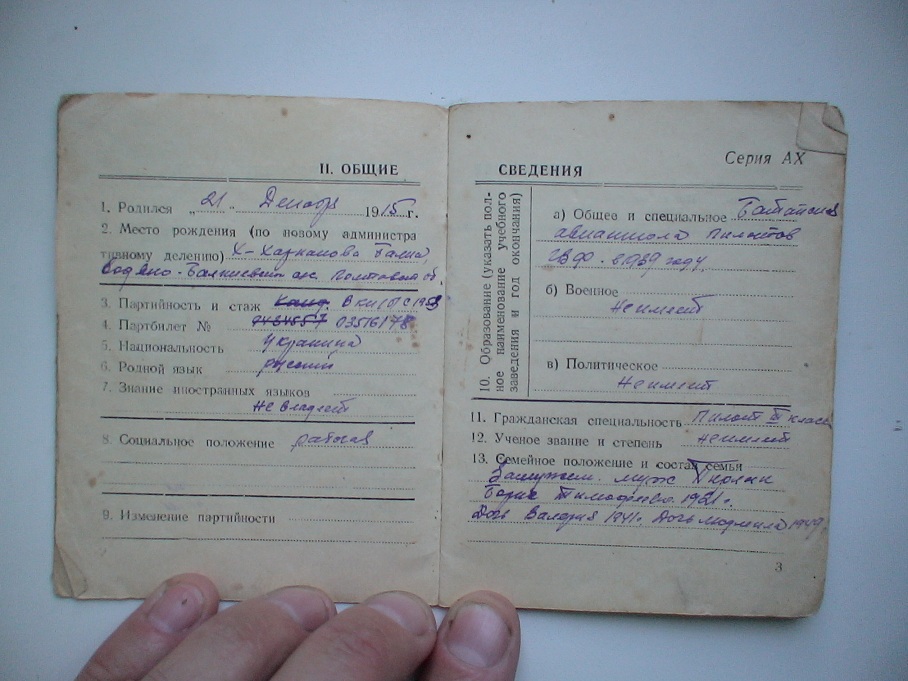 II. ОБЩИЕ
1. Родился „21" Декабр 1915 г.
2. Место рождения (по новому администра
тивному делению) Х-Харкалова Балка,
Полтавской об.
3. Партийность и стаж Канд. ВКП(б) с
4. Партбилет № 9484557 03516178
5. Национальность украинка
6. Родной язык русский
7. Знание иностранных языков
не владеет
8. Социальное положение рабочая
9. Изменение партийности
Серия АХ
СВЕДЕНИЯ
10. Образование (указать пол-
ное наименование учебного
заведения и год окончания)
а) Общее и специальное Батайская
авиашкола пилотов
ГВФ. в 1939 году
б) Военное
Не имеет
в) Политическое
Не имеет
11. Гражданская специальность Пилот III класса
12. Ученое звание и степень не имеет
13. Семейное положение и состав семьи
Замужем. муж
Борис Тимофеев. 1921 г.
Дочь Валерия 1941 г. Дочь Людмила 1949
3